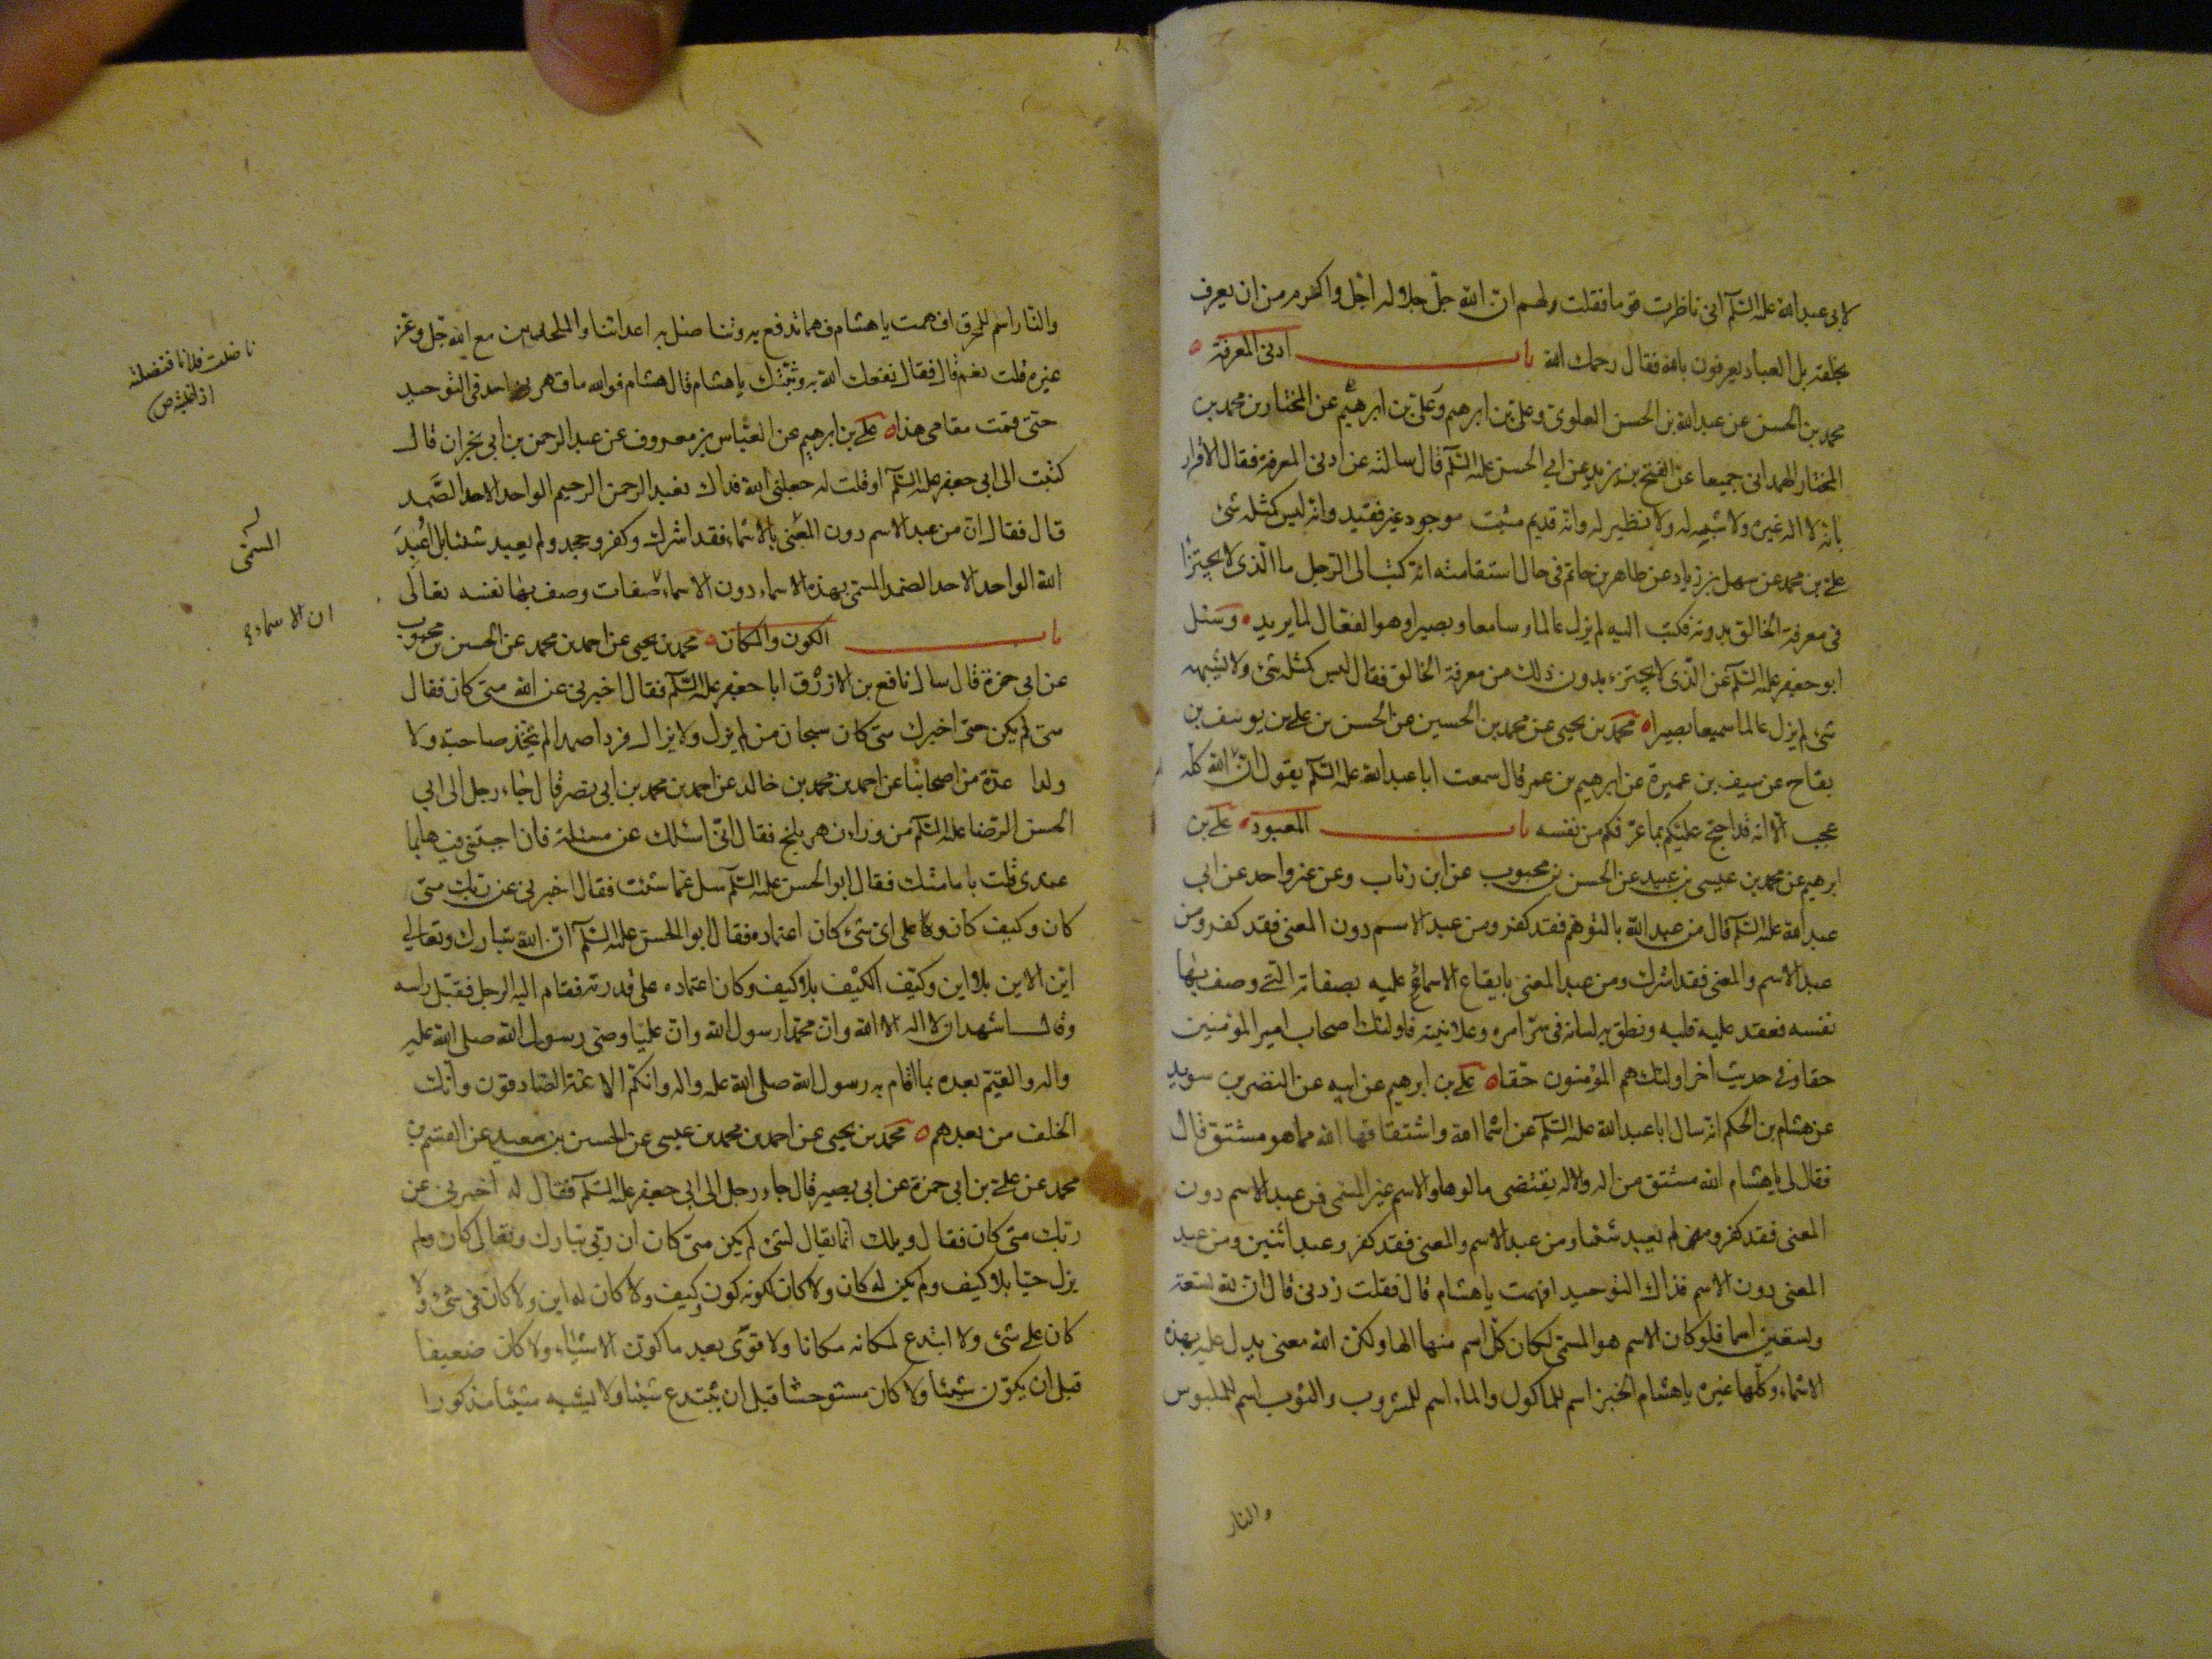 لابى عبد الله عليه السلم انى ناظرت قوما فقلت لهم ان الله جل جلاله اجل واكرم من ان يعرف
بخلقه بل العباد يعرفون بالله فقال رحمك الله باب ادنى المعرفة
محمد بن الحسن عن عبد الله بن الحسن العلوى وعلى بن ابرهيم وعلى بن ابرهيم عن المختار بن محمد بن
المختار الهمدانى جميعا عن الفتح بن يزيد عن ابي الحسن عليه السلم قال سالته عن ادنى المعرفة فقال الاقرار
بانه لا اله غيره ولا شبه له ولا نظير له وانه قديم مثبت موجود غير فقيد وانه ليس كمثله شئ
على بن محمد عن سهل بن زياد عن طاهر بن حاتم فى حال استقامته انه كتب الى الرجل ما الذى لا يجتزأ
فى معرفة الخالق بدونه فكتب اليه لم يزل عالما وسامعا وبصيرا وهو الفعال لما يريد وسئل
ابو جعفر عليه السلم عن الذى لا يجتزء بدون ذلك من معرفة الخالق فقال ليس كمثله شئ ولا يشبهه
شئ لم يزل عالما سميعا بصيرا محمد بن يحيى عن محمد بن الحسين عن الحسن بن على بن يوسف بن
بقاح عن سيف بن عميرة عن ابرهيم بن عمر قال سمعت ابا عبد الله عليه السلم يقول ان امر الله كله
عجب الا انه قد احتج عليكم بما عرفكم من نفسه باب المعبود على بن
ابرهيم عن محمد بن عيسى بن عبيد عن الحسن بن محبوب عن ابن رئاب وعن غير واحد عن ابي
عبد الله عليه السلم قال من عبد الله بالتوهم فقد كفر ومن عبد الاسم دون المعنى فقد كفر ومن
عبد الاسم والمعنى فقد اشرك ومن عبد المعنى بايقاع الاسماء عليه بصفاته التى وصف بها
نفسه فعقد عليه قلبه ونطق به لسانه فى سر امره وعلانيته فاولئك اصحاب امير المؤمنين
حقا وفى حديث اخر اولئك هم المؤمنون حقا على بن ابرهيم عن ابيه عن النضر بن سويد
عن هشام بن الحكم انه سال ابا عبد الله عليه السلم عن اسماء الله واشتقاقها الله مما هو مشتق قال
فقال لى يا هشام الله مشتق من اله والاله يقتضى مالوها والاسم غير المسمى فمن عبد الاسم دون
المعنى فقد كفر ولم يعبد شيئا ومن عبد الاسم والمعنى فقد كفر وعبد اثنين ومن عبد
المعنى دون الاسم فذاك التوحيد افهمت يا هشام قال فقلت زدنى قال ان لله تسعة
وتسعين اسما فلو كان الاسم هو المسمى لكان كل اسم منها الها ولكن الله معنى يدل عليه بهذه
الاسماء وكلها غيره يا هشام الخبز اسم للماكول والماء اسم للمشروب والثوب اسم للملبوس
والنار
والنار اسم للمحرق افهمت يا هشام فهما تدفع به وتناضل به اعدائنا والملحدين مع الله جل وعز
غيره قلت نعم قال فقال نفعك الله به وثبتك يا هشام قال هشام فوالله ما قهرنى احد فى التوحيد
حتى قمت مقامى هذا على بن ابرهيم عن العباس بن معروف عن عبد الرحمن بن ابى نجران قال
كتبت الى ابى جعفر عليه السلم او قلت له جعلنى الله فداك نعبد الرحمن الرحيم الواحد الاحد الصمد
قال فقال ان من عبد الاسم دون المعنى بالاسماء فقد اشرك وكفر وجحد ولم يعبد شيئا بل اعبد
الله الواحد الاحد الصمد المسمى بهذه الاسماء دون الاسماء صفات وصف بها نفسه تعالى
باب الكون والمكان محمد بن يحيى عن احمد بن محمد عن الحسن بن محبوب
عن ابى حمزة قال سال نافع بن الازرق ابا جعفر عليه السلم فقال اخبرنى عن الله متى كان فقال
متى لم يكن حتى اخبرك متى كان سبحان من لم يزل ولا يزال فردا صمدا لم يتخذ صاحبة ولا
ولدا عدة من اصحابنا عن احمد بن محمد بن خالد عن احمد بن محمد بن ابى نصر قال جاء رجل الى ابى
الحسن الرضا عليه السلم من وراء نهر بلخ فقال انى اسئلك عن مسئلة فان اجبتنى فيها بما
عندى قلت بامامتك فقال ابو الحسن عليه السلم سل عما شئت فقال اخبرنى عن ربك متى
كان وكيف كان وعلى اى شئ كان اعتماده فقال ابو الحسن عليه السلم ان الله تبارك وتعالى
اين الاين بلا اين وكيف الكيف بلا كيف وكان اعتماده على قدرته فقام اليه الرجل فقبل راسه
وقال اشهد ان لا اله الا الله وان محمدا رسول الله وان عليا وصى رسول الله صلى الله عليه
واله والقيم بعده بما اقام به رسول الله صلى الله عليه واله وانكم الائمة الصادقون وانك
الخلف من بعدهم محمد بن يحيى عن احمد بن محمد بن عيسى عن الحسين بن سعيد عن القسم بن
محمد عن على بن ابى حمزة عن ابى بصير قال جاء رجل الى ابى جعفر عليه السلم فقال له اخبرنى عن
ربك متى كان فقال ويلك انما يقال لشئ لم يكن متى كان ان ربى تبارك وتعالى كان ولم
يزل حيا بلا كيف ولم يكن له كان ولا كان لكونه كون كيف ولا كان له اين ولا كان فى شئ ولا
كان على شئ ولا ابتدع لمكانه مكانا ولا قوى بعد ما كون الاشياء ولا كان ضعيفا
قبل ان يكون شيئا ولا كان مستوحشا قبل ان يبتدع شيئا ولا يشبه شيئا مذكورا
ناضلت فلانا فنضلته
اذا غلبته ص
المسمى
ان الاسماء